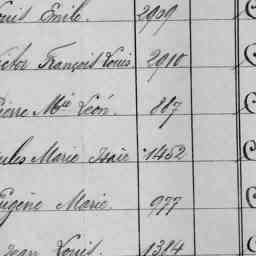 ouis Emile. 2909
ictor François Louis. 2910
ierre Mie Léon. 887
ules Marie Isaïe 1452
Eugène Marie. 977
Jean Louis. 1384